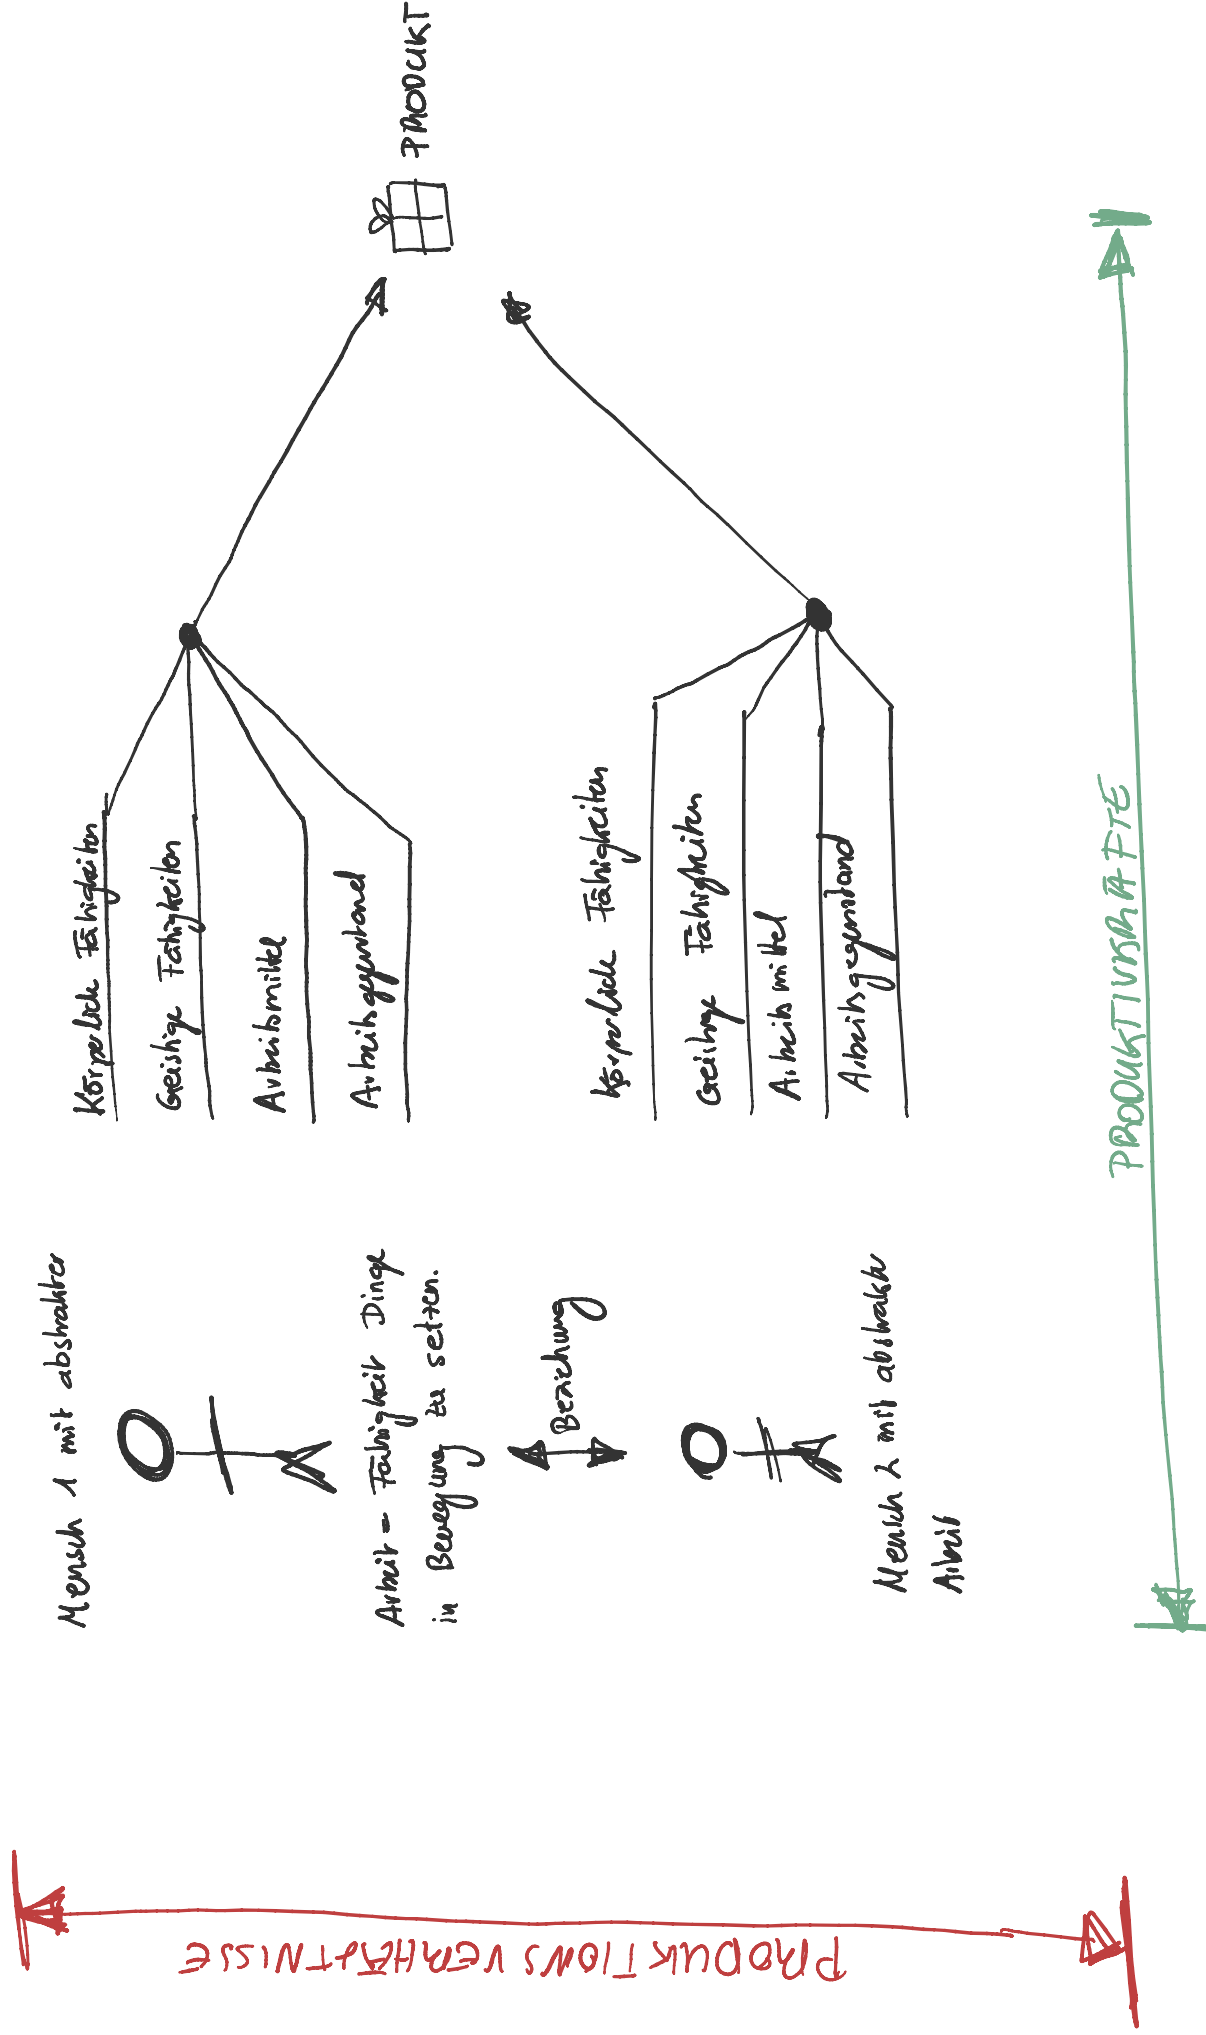 Mensch 1 mit abstrakter
Arbeit = Fähigkeit Dinge
in Bewegung zu setzen.
Beziehung
Mensch 2 mit abstrakter
Arbeit
Körperliche Fähigkeiten
Geistige Fähigkeiten
Arbeitsmittel
Arbeitsgegenstand
Körperliche Fähigkeiten
Geistige Fähigkeiten
Arbeitsmittel
Arbeitsgegenstand
PRODUKT
PRODUKTIVKRÄFTE
PRODUKTIONSVERHÄLTNISSE